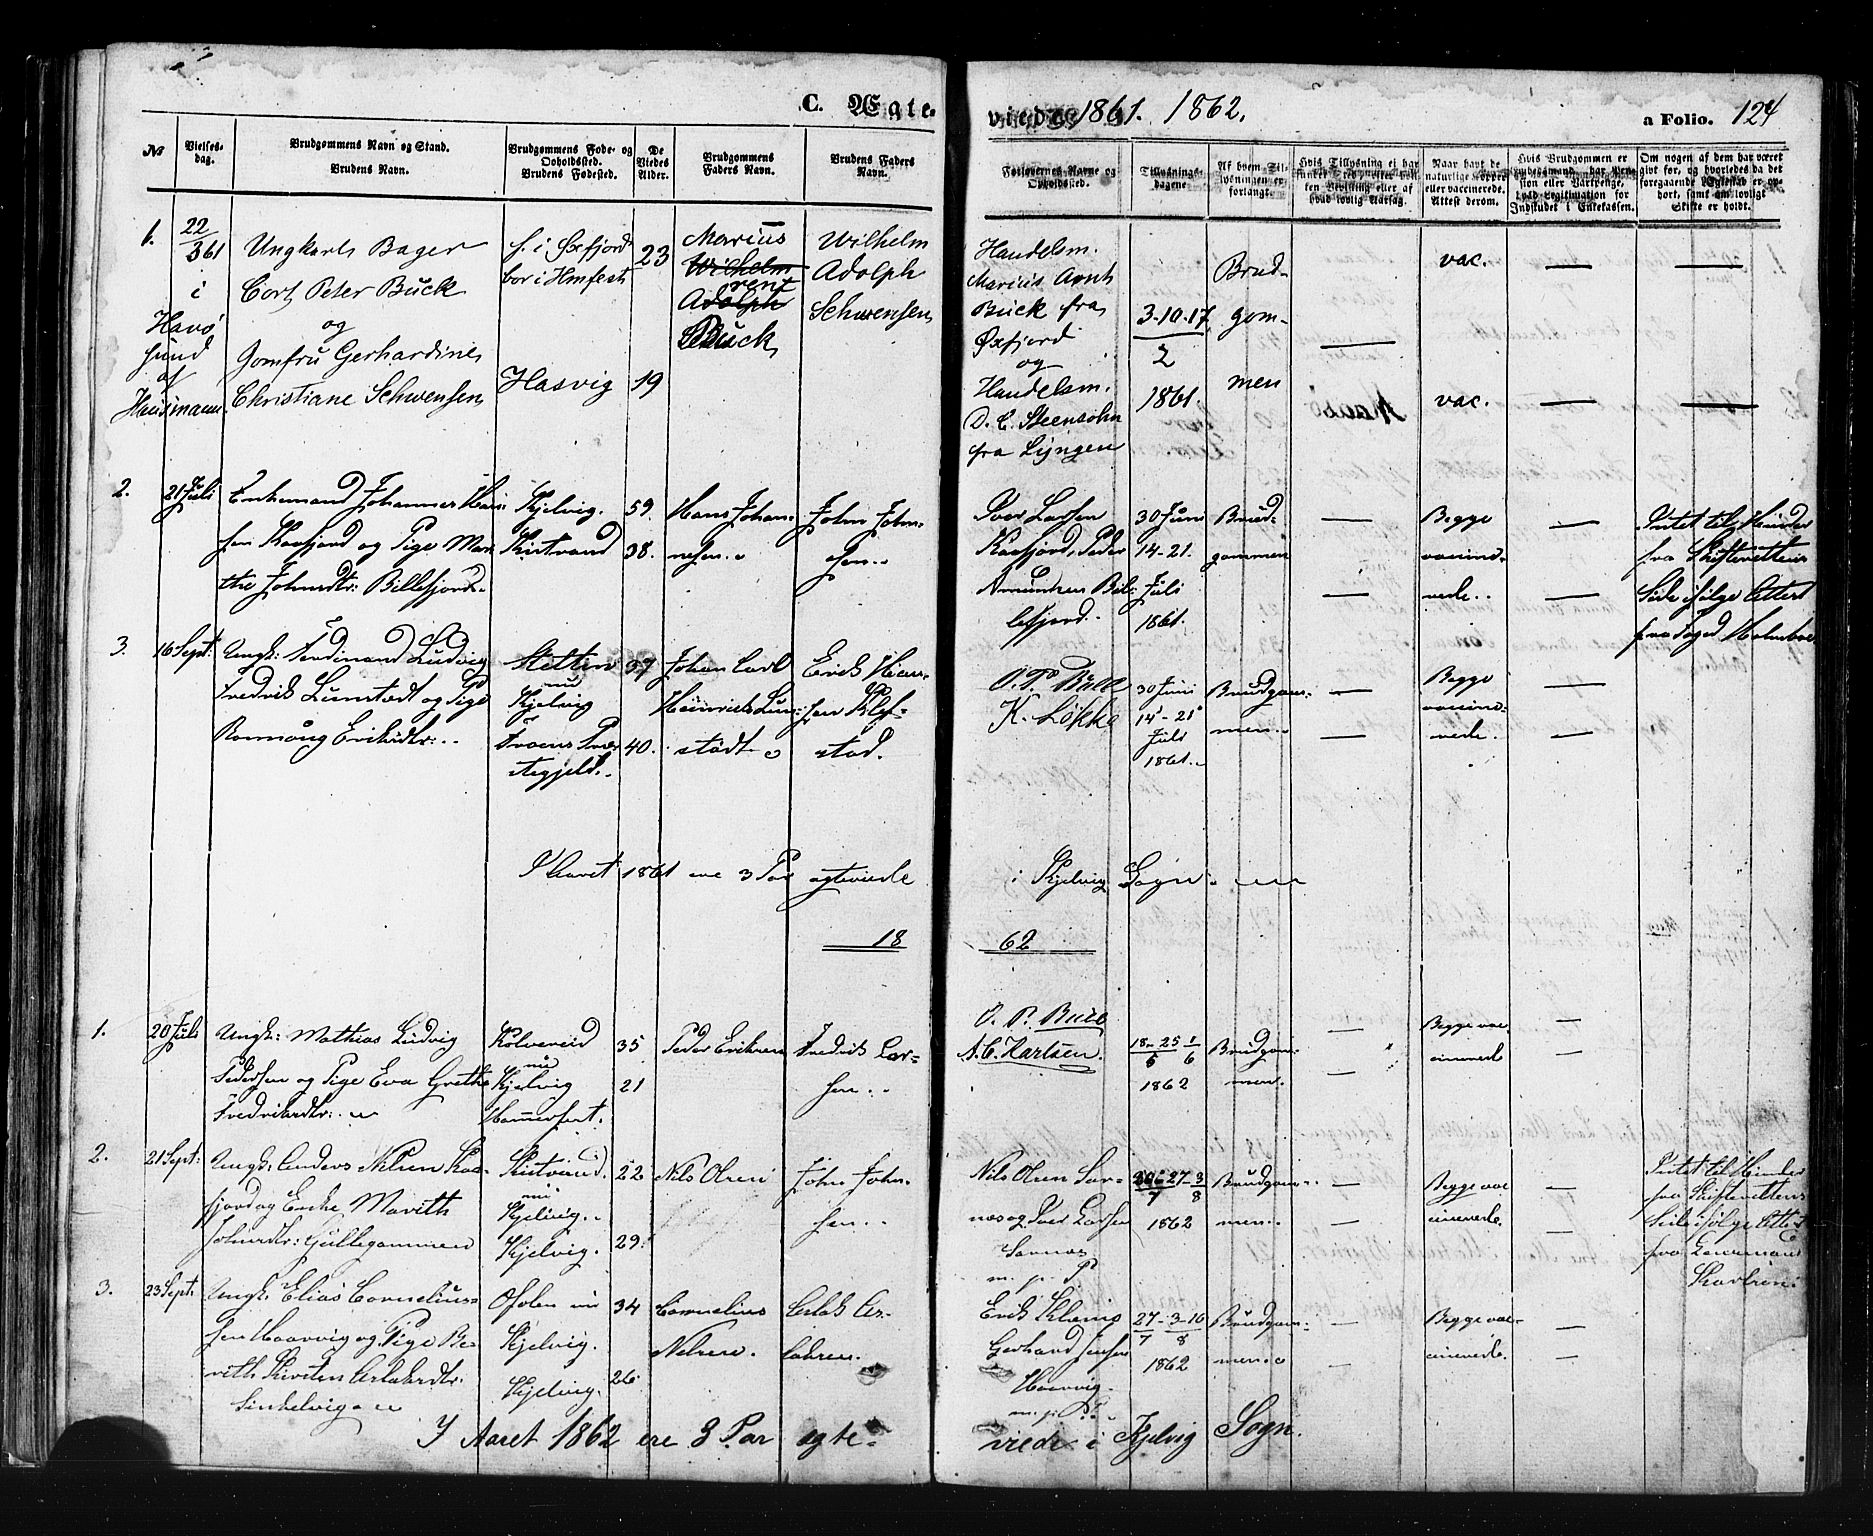 C. Ægte-
viede 1861. 1862.
a Folio. 124
No
Vielses-
dag.
Brudgommens Navn og Stand.
Brudens Navn.
Brudgommens Føde- og
Opholdssted.
Brudens Fødested.
De
Viedes
Alder.
Brudgommens
Faders Navn.
Brudens Faders
Navn.
Forlovernes Navne og
Opholdssted.
Tillysnings-
dagene
Af hvem Til-
lysningen er
forlangt.
Hvis Tillysning ei har
Naar havt de
naturlige Kopper
eller vaccinerede.
Attest derom.
Hvis Brudgommen er
sion eller Vartpenge,
hvad Legitimation for
Indskudet i Enkekassen.
Om nogen af dem har været
givt før, og hvorledes da det
foregaaende Ægteskab er op-
hørt, samt om lovligt
Skifte er holdt.
1.
22
3 61
i
Havø
sund
af
Hausmann.
Ungkarls Bager
Cort Peter Buck
og
Jomfru Gerhardine
Christiane Schwensen
f. i Øxfjord
bor i Hmfest
Hasvig
23
19
Marius
Wilhelm
rent
Adolph
Buck
Wilhelm
Adolph
Schwensen
Handelsm.
Marius Arnt
Buck fra
Øxfjord
og
Handelsm.
D. C. Steensohn
fra Lyngen
3-10-17
2
1861.
Brud-
gom-
men
vac.
vac.
2.
21 Juli
Enkemand Johannes Han-
sen Kaafjord og Pige Mar-
the Johnsdtr: Billefjord.
Kjelvig.
Kistrand
59.
38.
Hans Johan-
nesen.
John John-
sen.
Iver Larsen
Kaafjord, Peder
Amundsen Bil-
lefjord.
30 Juni
14-21.
Juli
1861.
Brud-
gommen
Begge
vaccine-
rede.
Intet til Hinder
fra Skifterettens
Side ifølge Attest
fra Foged Holmboe
3.
16 Sept.
Ungk: Ferdinand Ludvig
Fredrik Lunstedt og Pige
Ronnaug Eriksdtr:
Stettin
nu
Kjelvig
37
40.
Johan Carl
Heinrich Lun-
stedt
Erik
stad.
O. P. Buck
K. Løkke
30 Juni
14-21
Juli
1861.
Brudgom-
men.
Begge
vaccine-
rede.
I Aaret 1861 ere 3 Par ægteviede
i Kjelvig Sogn.
18
62
1.
20 Juli
Ungk: Mathias Ludvig
Pedersen og Pige Eva Grethe
Fredriksdtr:
Kolvereid
nu
Kjelvig
Hammerfest.
35
21
Peder Eriksen
Fredrik Lar-
sen.
O. P. Buck
A. C. Karlsen.
18-25 1
5 6
1862
Brudgom-
men.
Begge vac-
cinerede
2.
21 Sept:
Ungk: Anders Nilsen Kaa-
fjord og Enke Marith
Johnsdtr: Gullegammen
Kistrand.
nu
Kjelvig.
Kjelvig.
22
29.
Nils Olsen
John John-
sen.
Nils Olsen Sar-
nes og Iver Larsen
Sarnes
m. p. P.
20-27-3
7 8
1862
Brudgom-
men.
Begge vac-
cinerede.
Intet til Hinder
fra Skifterettens
Side ifølge Attest
fra Lensmand
3.
23 Sept.
Ungk: Elias Cornelius-
sen Hoarvig og Pige Be-
rith Kirsten Aslaksdtr:
Ofoten nu
Kjelvig.
Kjelvig.
34
26.
Cornelius
Nilsen.
Aslak As-
laksen.
Erik
Gerhard Jensen
Hoarvig.
m. p. P.
27-3-10
7 8
1862
Brudgom-
men.
Begge vac-
cinerede.
I Aaret 1862 ere 3 Par ægte-
viede i Kjelvig Sogn.